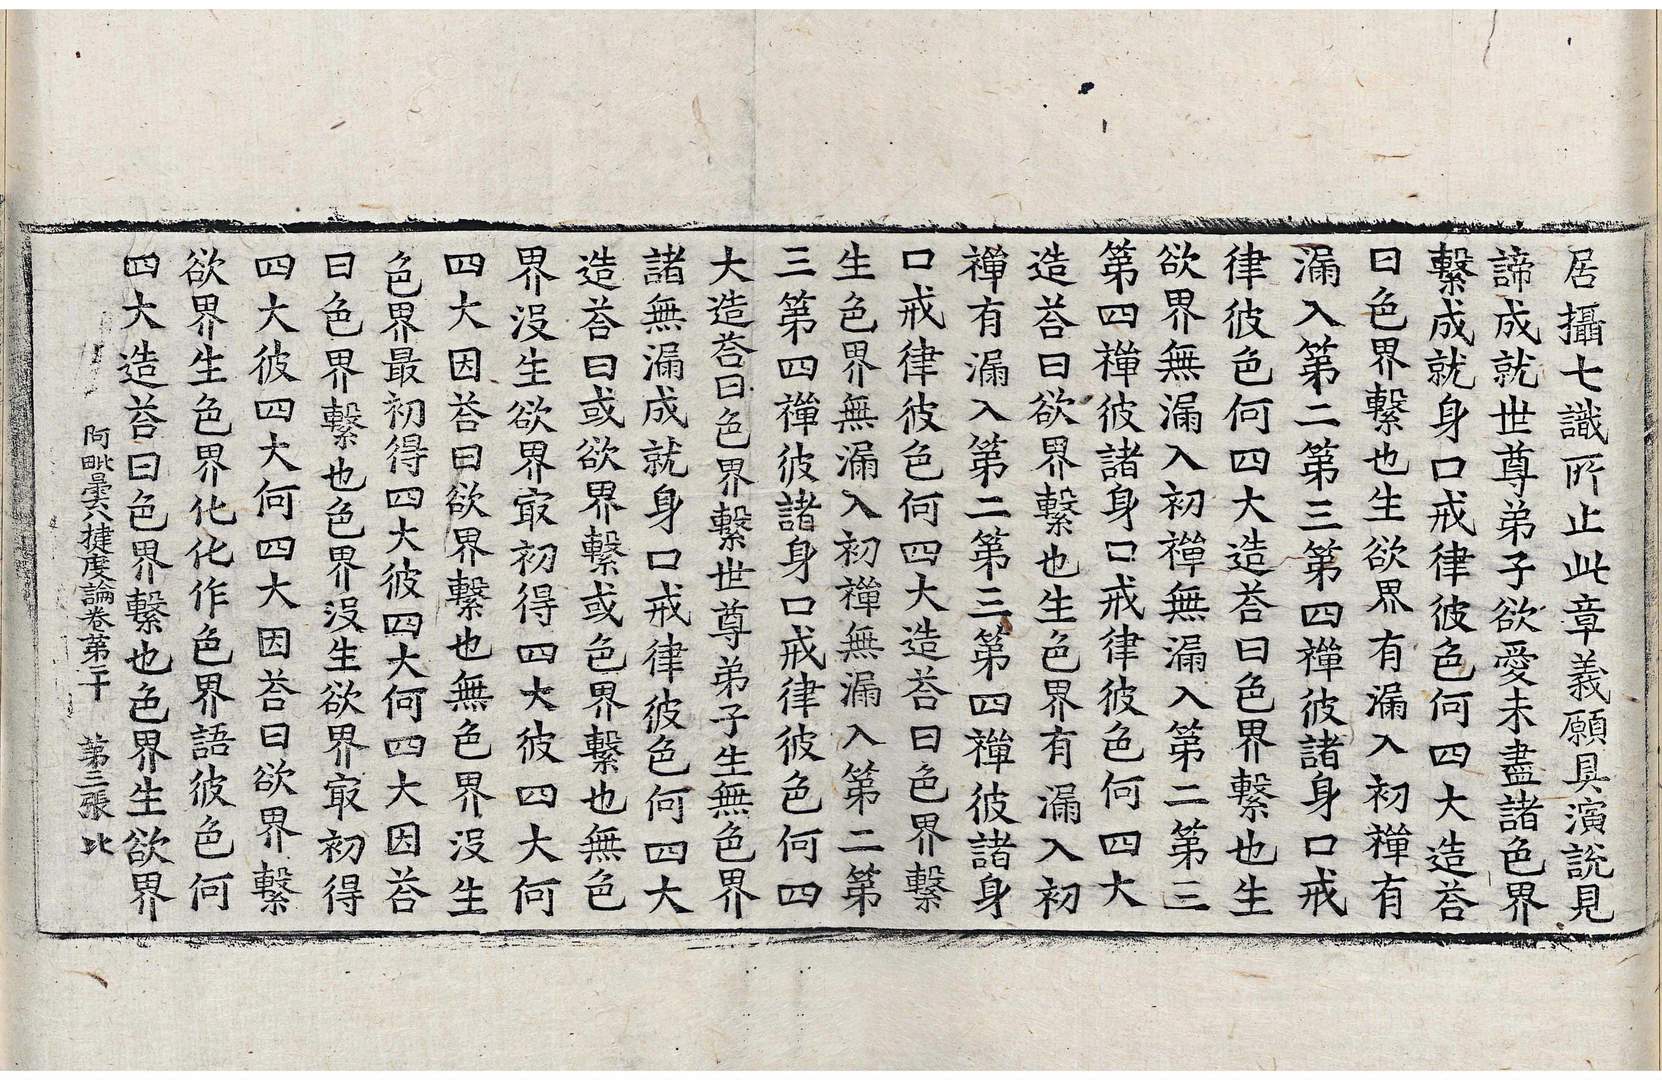 居攝七識所止此章義願具演說見
諦成就世尊弟子欲愛未盡諸色界
繫成就身口戒律彼色何四大造荅
曰色界繫也生欲界有漏入初禪有
漏入第二第三第四禪彼諸身口戒
律彼色何四大造荅曰色界繫也生
欲界無漏入初禪無漏入第二第三
第四禪彼諸身口戒律彼色何四大
造荅曰欲界繫也生色界有漏入初
禪有漏入第二第三第四禪彼諸身
口戒律彼色何四大造荅曰色界繫
生色界無漏入初禪無漏入第二第
三第四禪彼諸身口戒律彼色何四
大造荅曰色界繫世尊弟子生無色界
諸無漏成就身口戒律彼色何四大
造荅曰或欲界繫或色界繫也無色
界沒生欲界㝡初得四大彼四大何
四大因荅曰欲界繫也無色界沒生
色界最初得四大彼四大何四大因荅
曰色界繫也色界沒生欲界㝡初得
四大彼四大何四大因荅曰欲界繫
欲界生色界化化作色界語彼色何
四大造荅曰色界繫也色界生欲界
阿毗曇八揵度論卷第二十 第三張 比